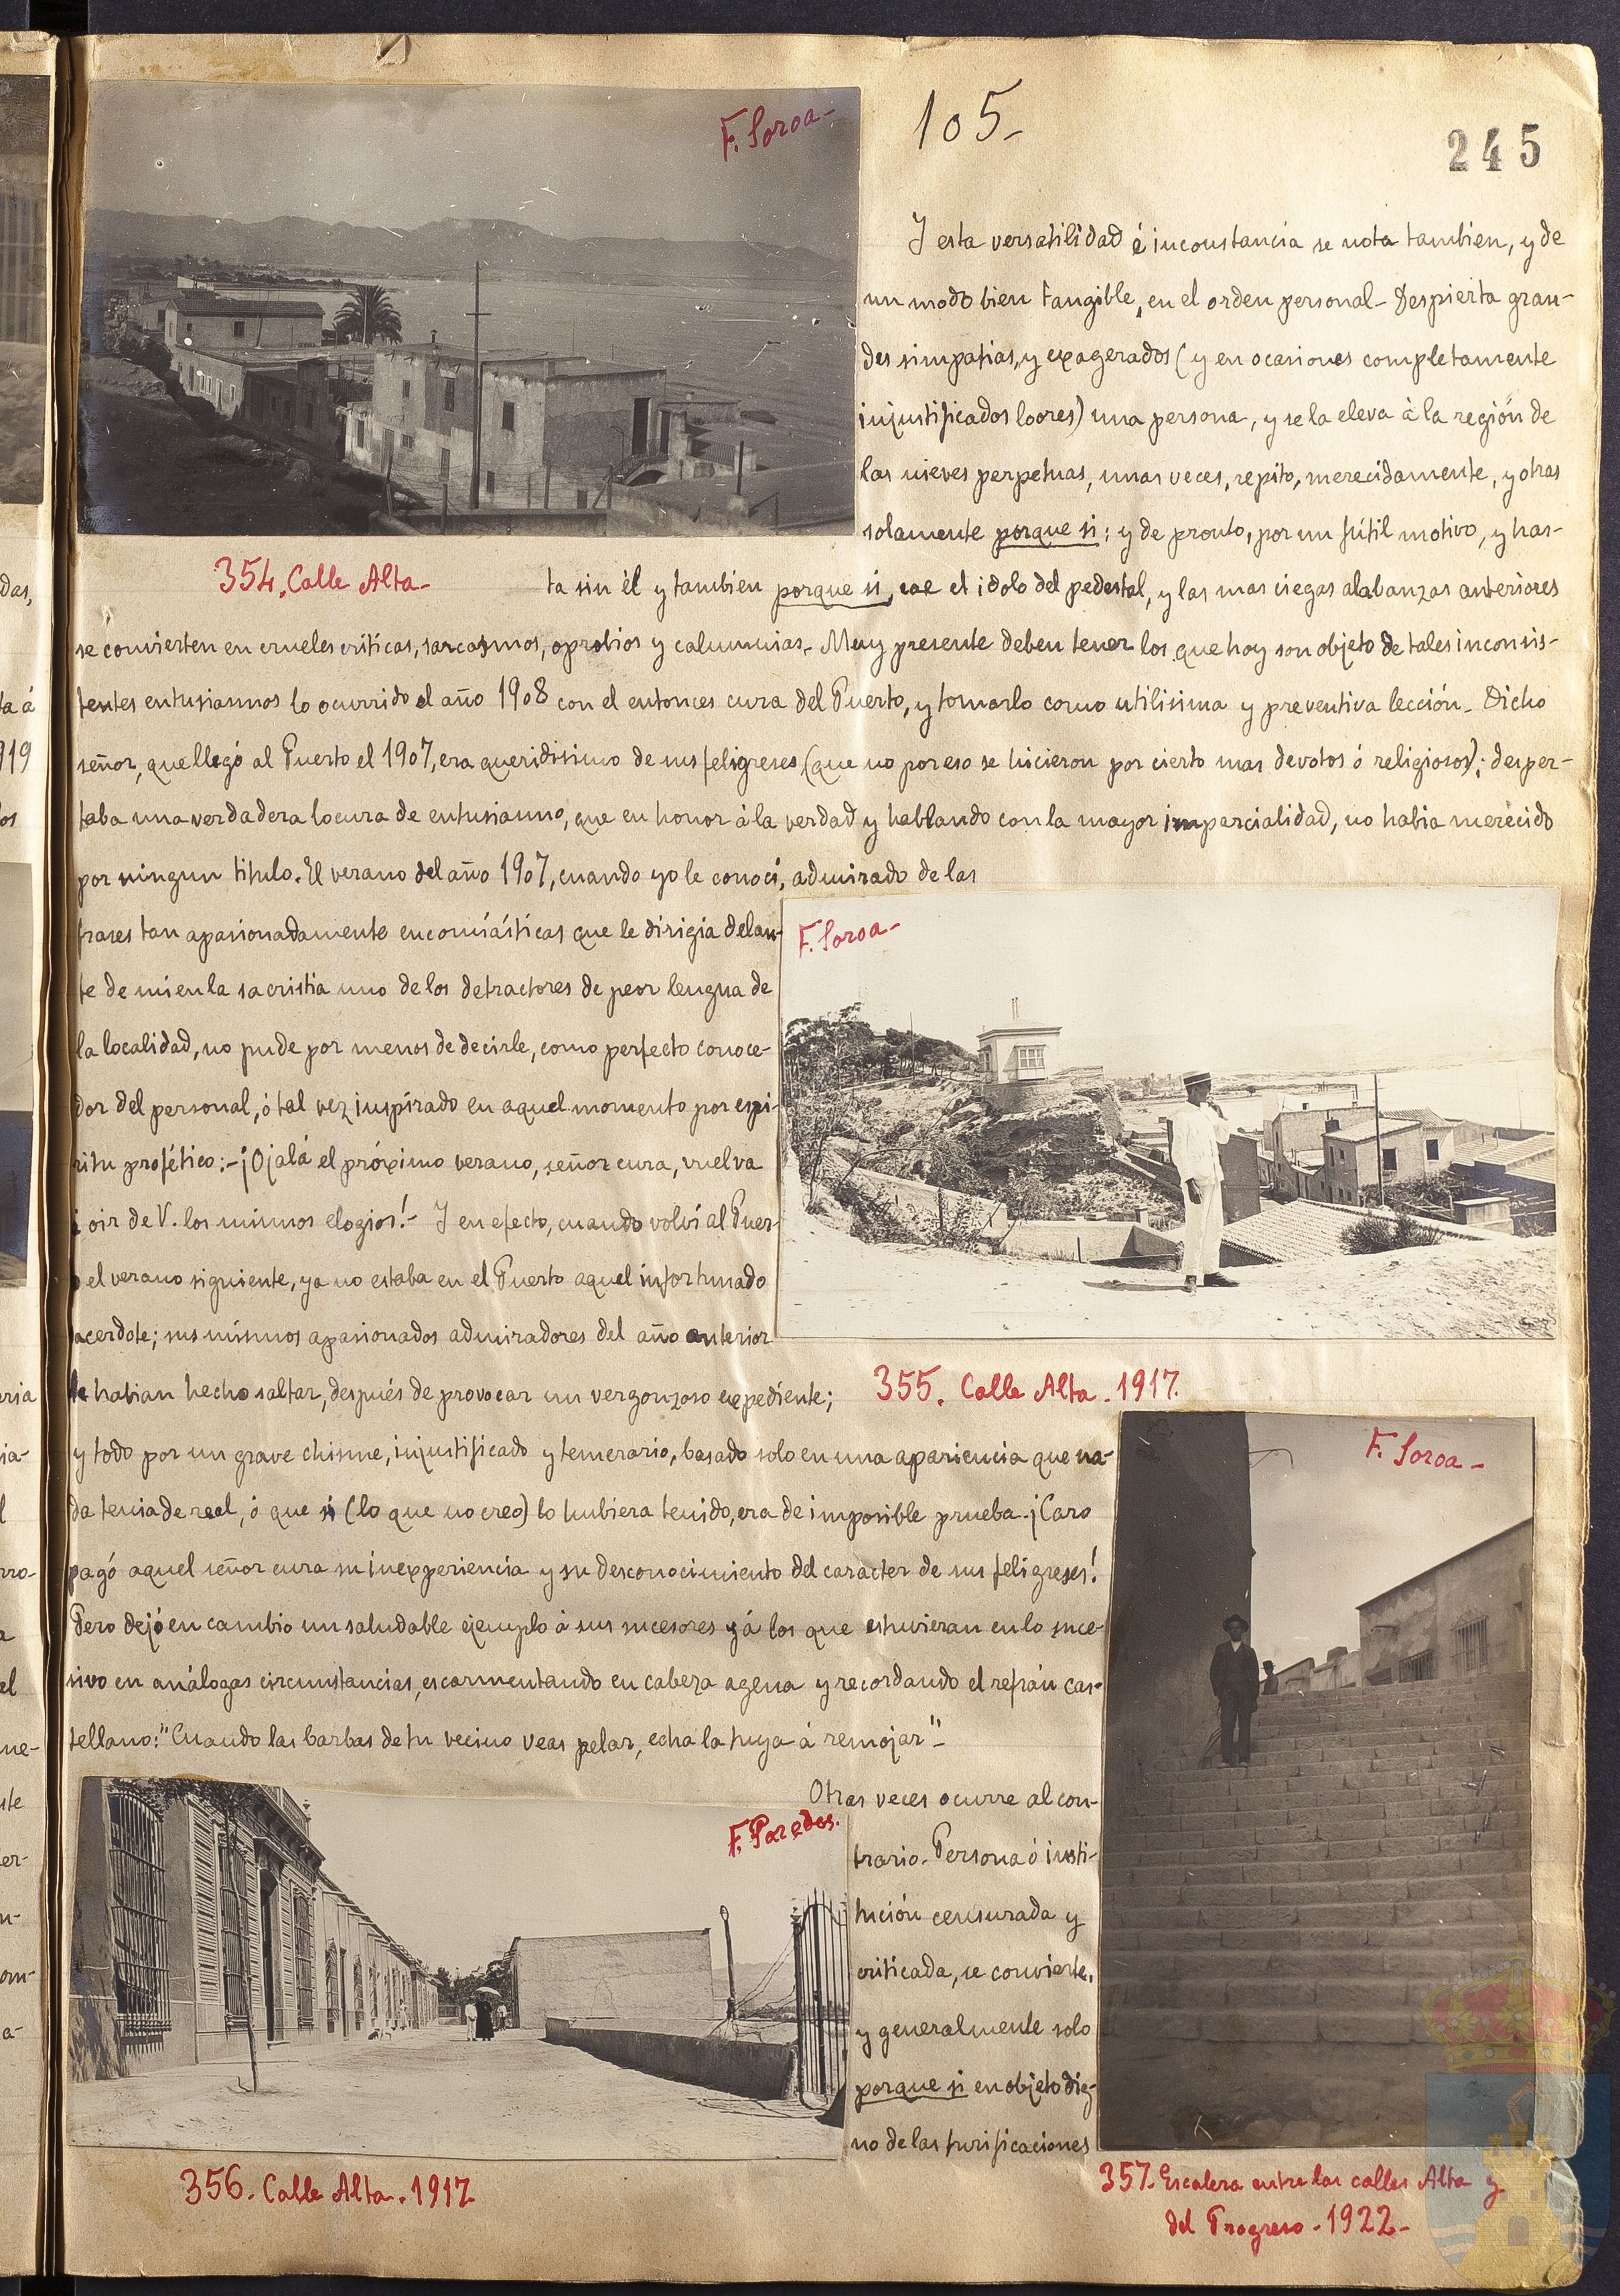 105-
245
F. Soroa-
Y esta versatilidad é inconstancia se nota tambien, y de
un modo bien tangible, en el orden personal- Despierta gran-
des simpatias, y exagerados (y en ocasiones completamente
injustificados loores) una persona, y se la eleva à la región de
las nieves perpetuas, unas veces, repito, merecidamente, y otras
solamente porque si; y de pronto, por un fútil motivo, y has-
354. Calle Alta-
ta sin él y tambien porque si, cae el idolo del pedestal, y las mas ciegas alabanzas anteriores
se convierten en crueles críticas, sarcasmos, oprobios y calumnias.- Muy presente deben tener los que hoy son objeto de tales inconsis-
tentes entusiasmos lo ocurrido el año 1908 con el entonces cura del Puerto, y tomarlo como utilisima y preventiva lección- Dicho
señor, que llegó al Puerto el 1907, era queridisimo de sus feligreses (que no por eso se hicieron por cierto mas devotos ó religiosos); desper-
taba una verdadera locura de entusiasmo, que en honor à la verdad y hablando con la mayor imparcialidad, no habia merecido
por ningun titulo. El verano del año 1907, cuando yo le conocí, admirado de las
frases tan apasionadamente encomiásticas que le dirigia delan-
te de mi en la sacristia uno de los detractores de peor lengua de
la localidad, no pude por menos de decirle, como perfecto conoce-
dor del personal, ó tal vez inspirado en aquel momento por espi-
ritu profético:-¡Ojalá el próximo verano, señor cura, vuelva
à oir de V. los mismos elogios!- Y en efecto, cuando volví al Puer-
o el verano siguiente, ya no estaba en el Puerto aquel infortunado
acerdote; sus mismos apasionados admiradores del año anterior
le habian hecho saltar, después de provocar un vergonzoso expediente;
F. Soroa-
355. Calle Alta-1917.
y todo por un grave chisme, injustificado y temerario, basado solo en una apariencia que na-
da tenia de real, ó que si (lo que no creo) lo hubiera tenido, era de imposible prueba-¡Caro
pagó aquel señor cura su inexperiencia y su desconocimiento del caracter de sus feligreses!
Pero dejó en cambio un saludable ejemplo à sus sucesores y à los que estuvieran en lo suce-
sivo en análogas circunstancias, escarmentando en cabeza agena y recordando el refrán cas-
tellano: "Cuando las barbas de tu vecino veas pelar, echa la tuya à remojar"-
F. Soroa-
F. Paredes.
Otras veces ocurre al con-
trario- Persona ó insti-
tución censurada y
criticada, se convierte,
y generalmente solo
porque si en objeto dig-
no de las turificaciones
356. Calle Alta. 1917.
357. Escalera entre las calles Alta y
del Progreso-1922-
das,
ta á
919
os
eria
ia-
l
rro-
a
el
me-
ste
er-
n-
om-
a-